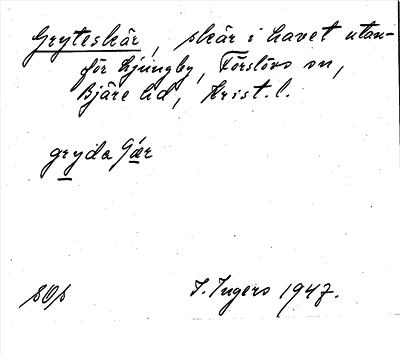 Gryteskär, skär i havet utan-
för Ljungby, Förslövs sn,
Bjäre hd, Krist. l.
gryda ʃär
SOp
I. Ingers 1947.